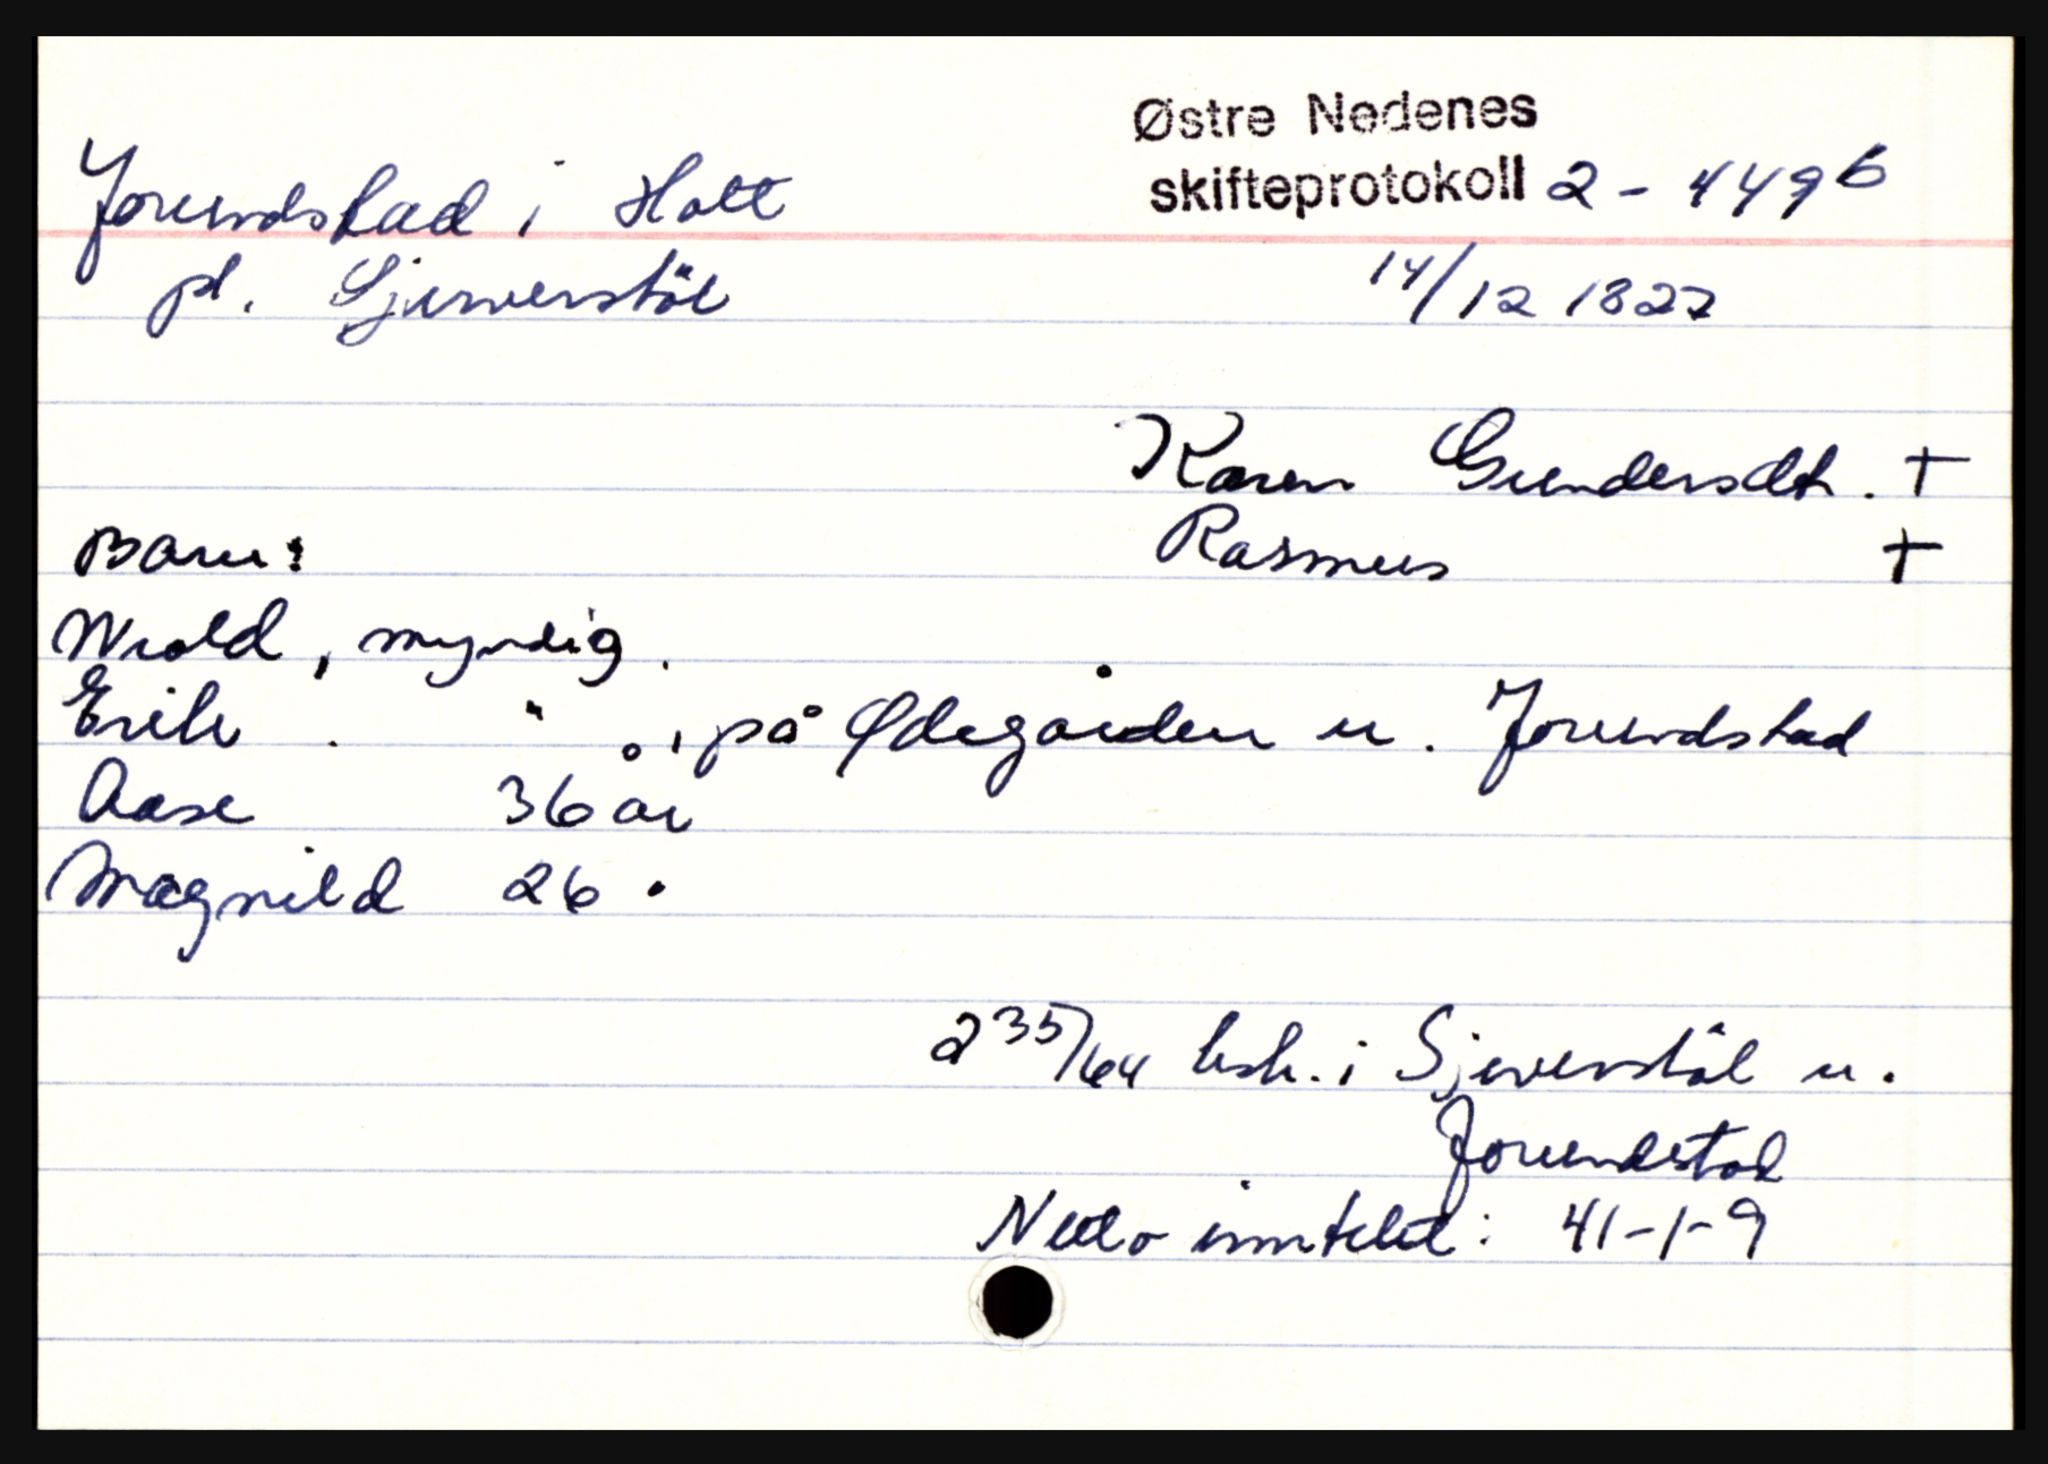 Østre Nedenes
skifteprotokoll 2 - 449 b
Jorundstad i Holt
pl. Sjeverstöl
14/12 1827
Karen Gundersdtr. +
Rasmus +
Barn:
Wrold, myndig.
Erik . " , på Ødegården u. Jorundstad
Aase 36 år
Magnild 26 "
2 35/64 lish. i Sjeverstöl u.
Jorundstad
Netto inntekt: 41-1-9